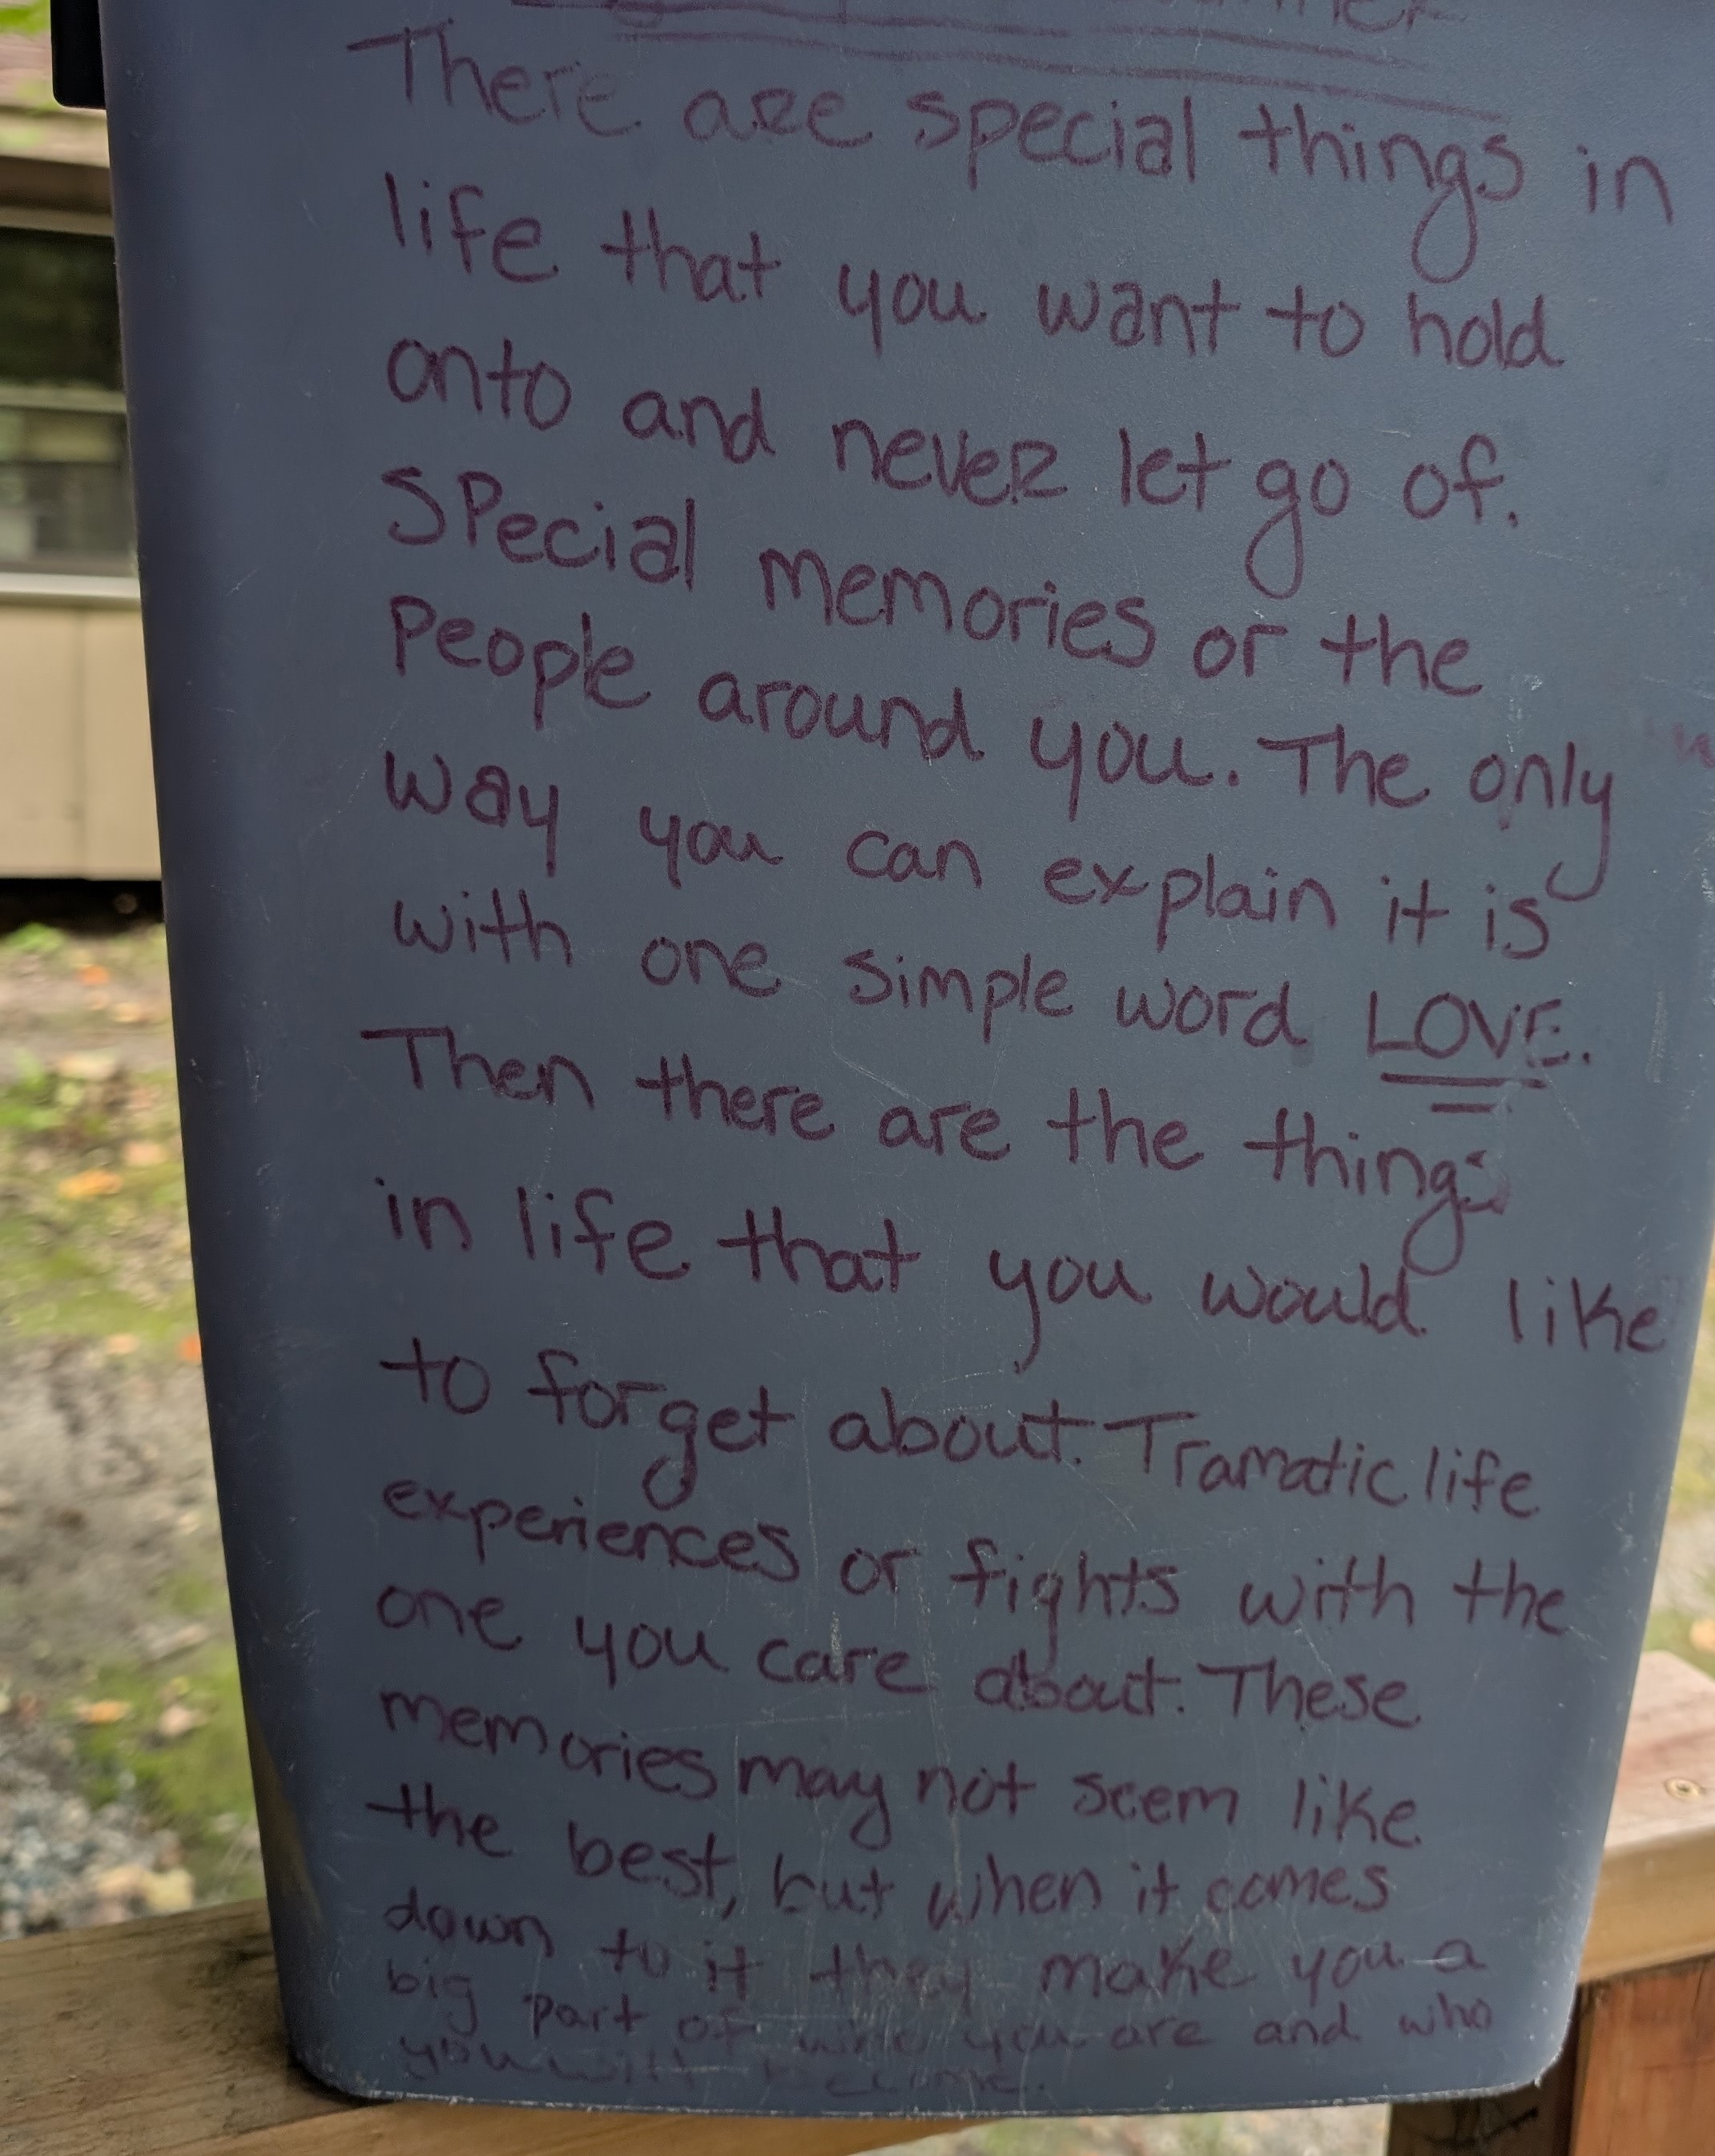 There are special things in
life that you want to hold
onto and never let go of.
Special memories or the
People around you. The only
way you can explain it is
with one simple word LOVE.
Then there are the things
in life that you would like
to forget about. Tramatic life
experiences or fights with the
one you care about. These
memories may not seem like
the best, but when it comes
down to it they make you a
big part of who you are and who
you will become.